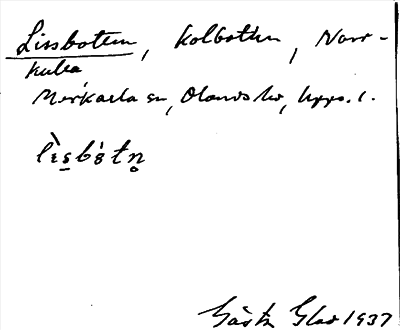 Lissbotten, Kolbotten, Norr-
kulla
Morkarla sn, Olands hd, Upps. l.
lìsbótn̥
Gösta Glas 1937